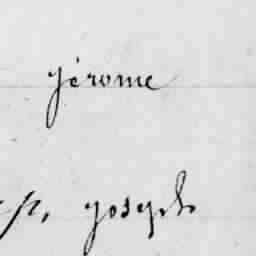 Jérome
Joseph